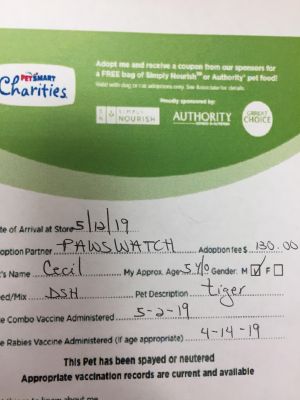 Adopt me and receive a coupon from our sponsors for
a FREE bag of Simply Nourish™ or Authority® pet food!
Valid with dog or cat adoptions only. See Associate for details.
PETSMART
Charities
Proudly sponsored by:
SIMPLY
NOURISH
AUTHORITY
GREAT
CHOICE
te of Arrival at Store 5/12/19
option Partner PAWSWATCH Adoption fee $ 130.00
's Name Cecil My Approx. Age 5 Y/O Gender: M ☑ F ☐
eed/Mix DSH Pet Description tiger
e Combo Vaccine Administered 5-2-19
e Rabies Vaccine Administered (if age appropriate) 4-14-19
This Pet has been spayed or neutered
Appropriate vaccination records are current and available